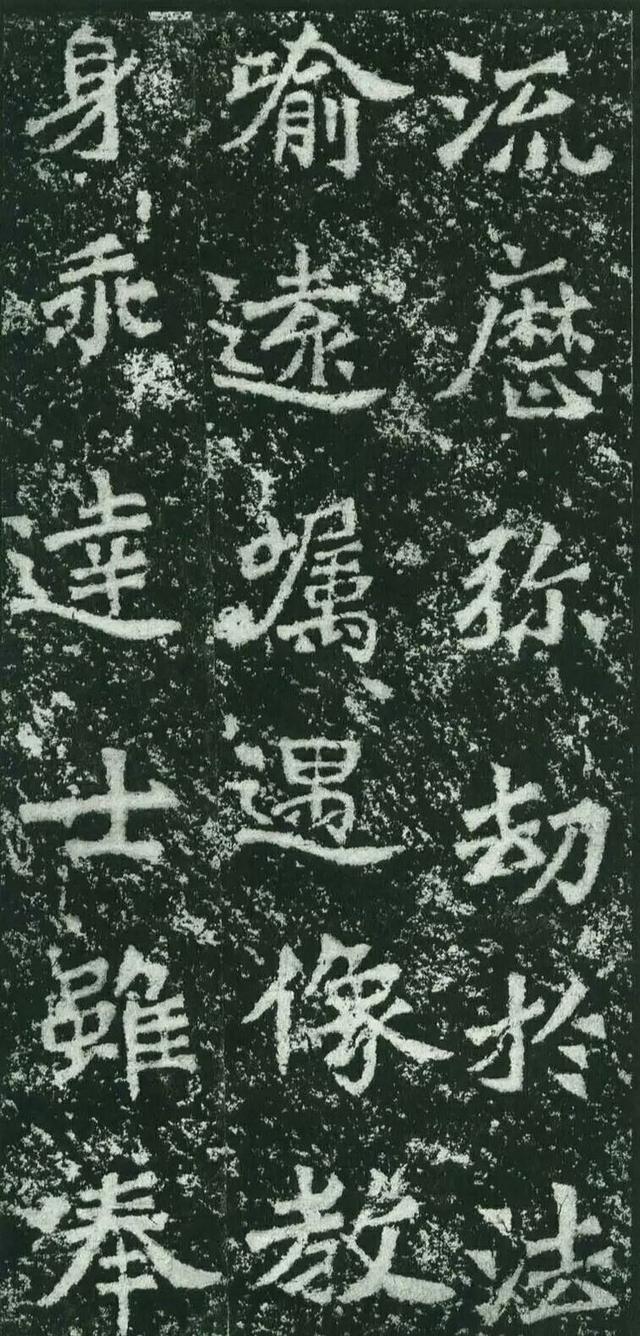 流歷弥劫於法
喻遠嘱遇像教
身乖達士雖奉